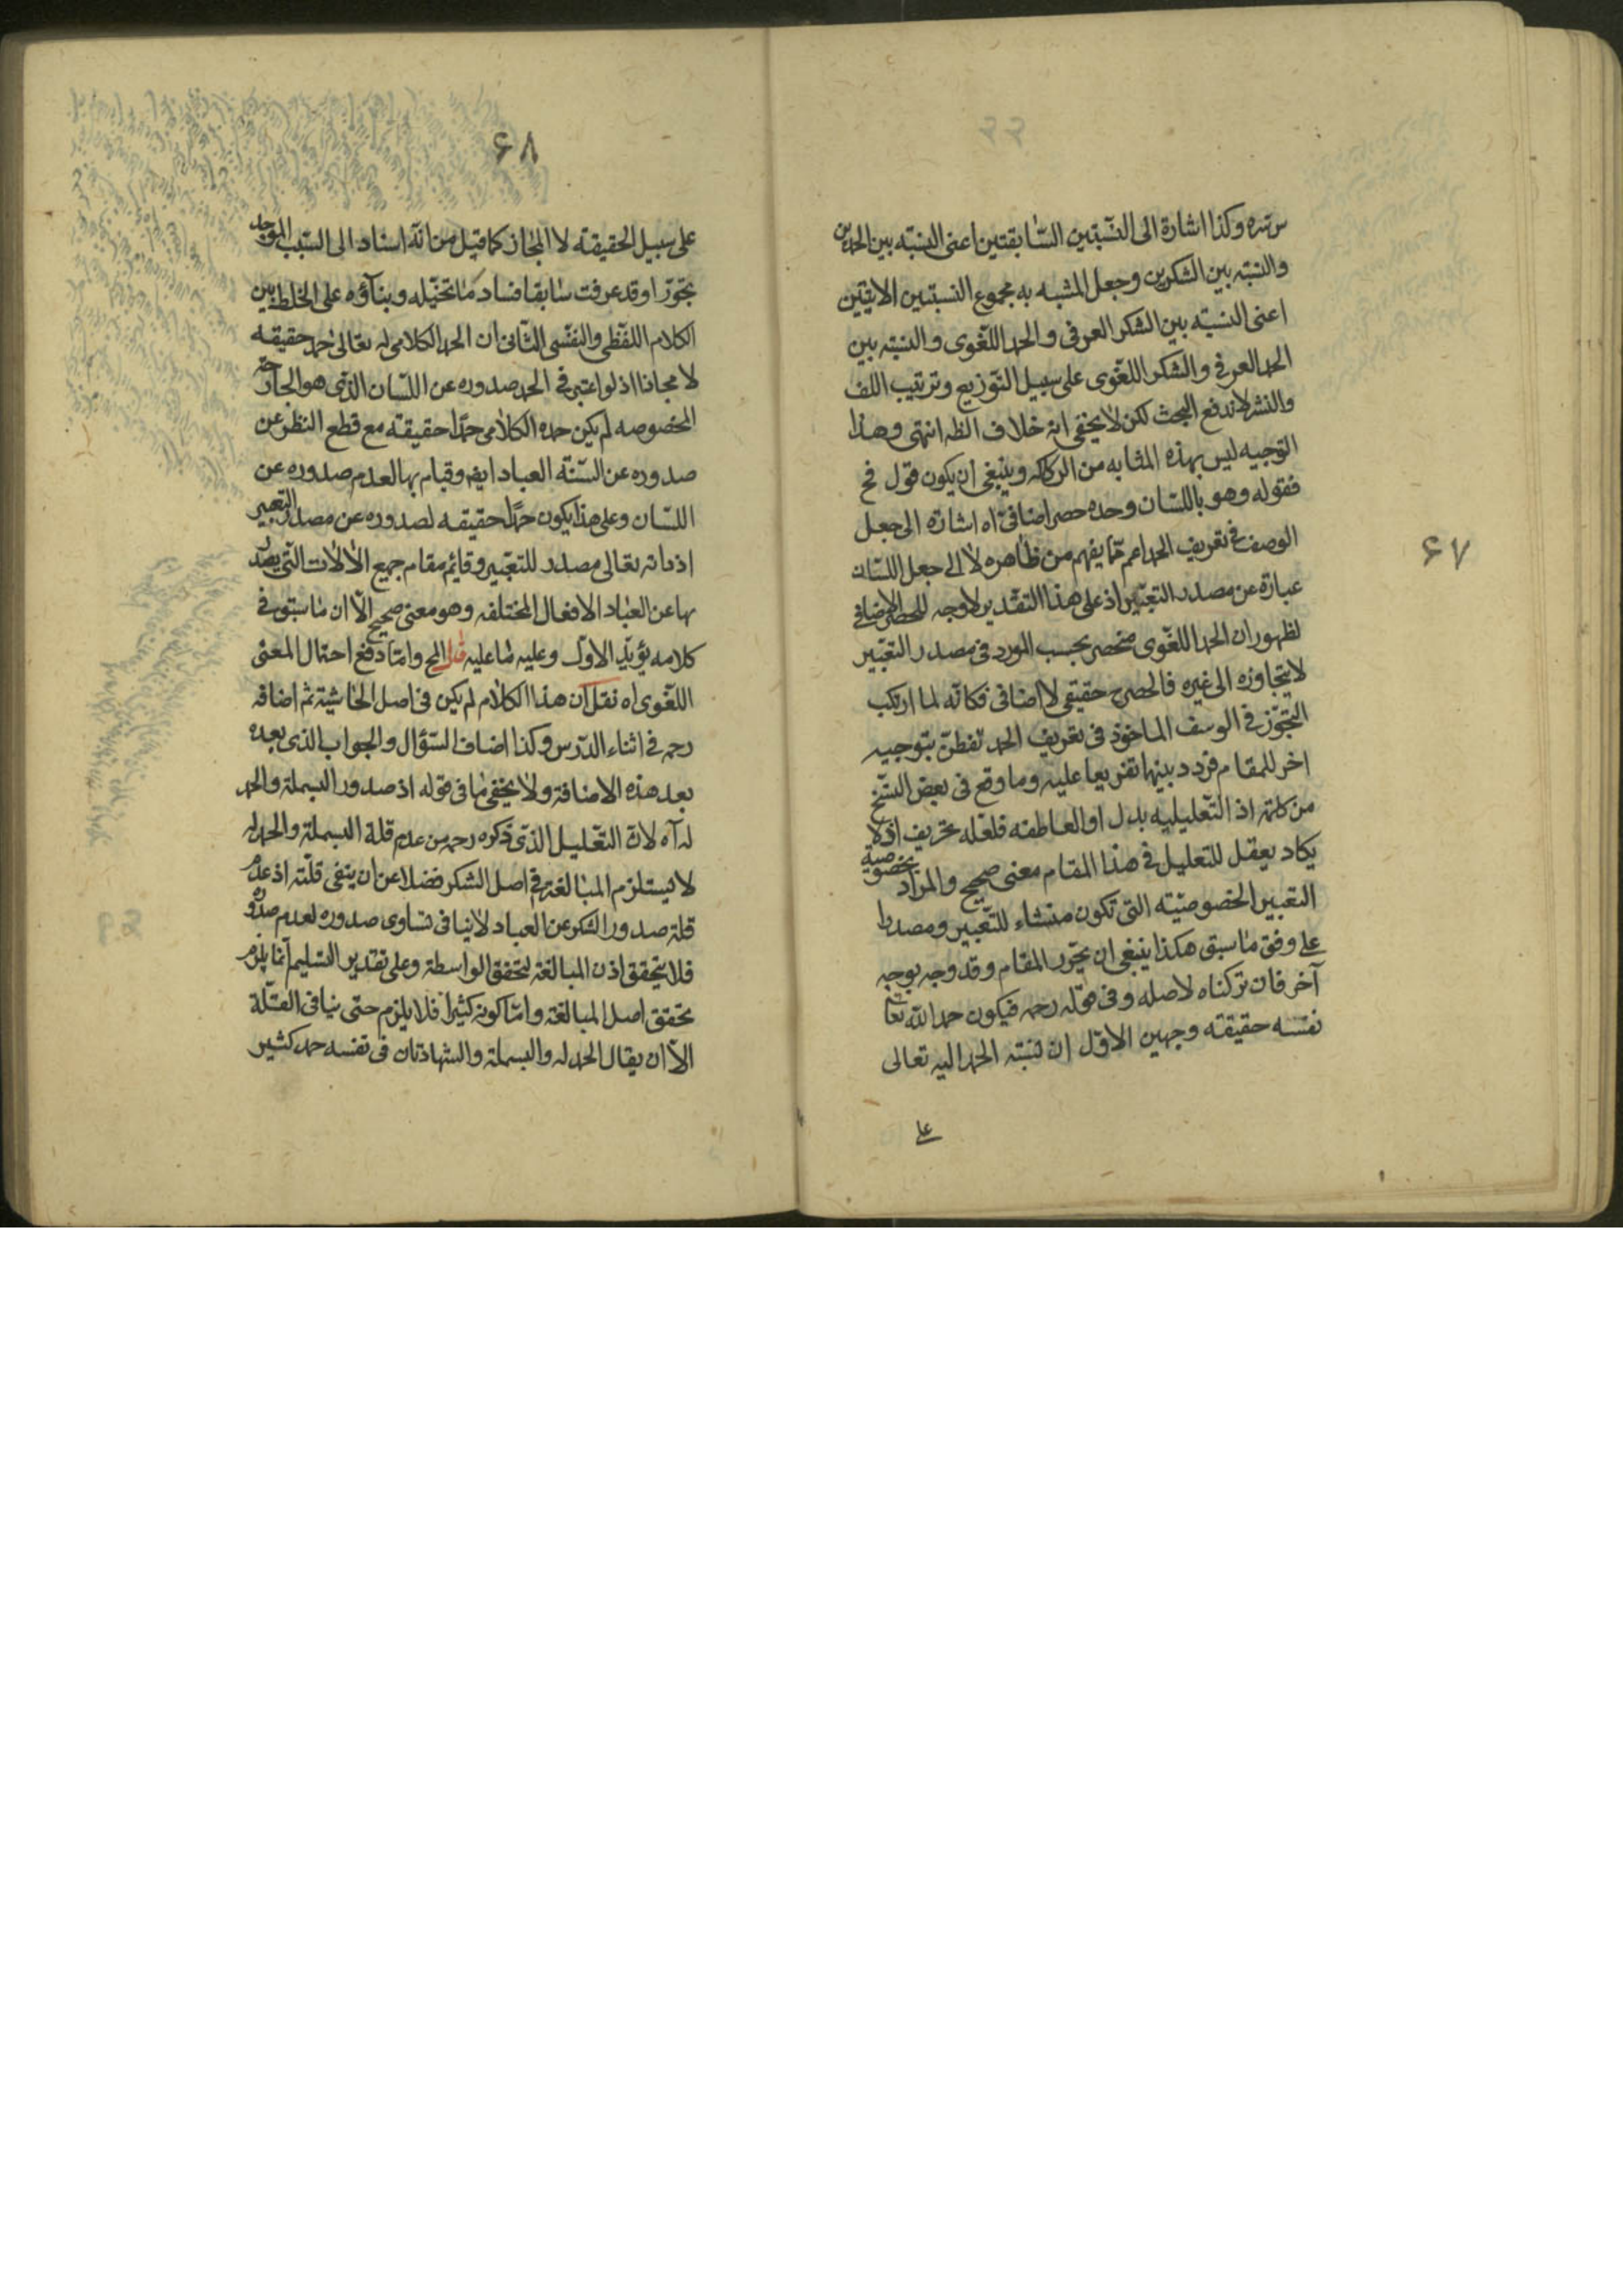 ۶۷
سره وكذا اشارة الى النسبتين السابقتين اعنى النسبته بين الحمدين
والنسبته بين الشكرين وجعل المشبه به مجموع النسبتين الاتيتين
اعنى النسبته بين الشكر العرفى والحمد اللغوى والنسبته بين
الحمد العرفى والشكر اللغوى على سبيل التوزيع وترتيب اللف
والنشر لاندفع البحث لكن لا يخفى انه خلاف الظ انتهى وهذا
التوجيه ليس بهذه المثابه من الركاكه وينبغى ان يكون قول فح
فقوله وهو باللسان وحده حصر اضافى اه اشارة الى جعل
الوصف فى تعريف الحمد اعم مما يفهم من ظاهره لا الى جعل اللسان
عبارة عن مصدر التعبير اذ على هذا التقدير لا وجه للحصر الاضافى
لظهور ان الحمد اللغوى منحصر بحسب المورد فى مصدر التعبير
لا يتجاوزه الى غيره فالحصر ح حقيقى لا اضافى فكانه لما ارتكب
التجوز فى الوصف الماخوذ فى تعريف الحمد تفطن بتوجيه
اخر للمقام فردد بينها تفريعا عليه وما وقع فى بعض النسخ
من كلمة اذ التعليليه بدل او العاطفه فلعله تحريف اذ لا
يكاد يعقل للتعليل فى هذا المقام معنى صحيح والمراد بخصوصية
التعبير الخصوصيته التى تكون منشاء للتعبير ومصدرا
على وفق ما سبق هكذا ينبغى ان يحرر المقام وقد وجه بوجه
آخر فان تركناه لاصله وفى قوله رحمه فيكون حمد الله تعا
نفسه حقيقته وجهين الاول ان نسبته الحمد اليه تعالى
على
۶۸
على سبيل الحقيقته لا المجاز كما قيل من انه اسناد الى السبب الموجد
تجوزا وقد عرفت سابقا فساد ما تخيله وبناؤه على الخلط بين
الكلام اللفظى والنفسى الثانى ان الحمد الكلامى له تعالى حمد حقيقه
لا مجازا اذ لو اعتبر فى الحمد صدوره عن اللسان الذى هو الجارحة
المخصوصه لم يكن حمده الكلامى حمدا حقيقته مع قطع النظر عن
صدوره عن السنة العباد ايض وقيام بها لعدم صدوره عن
اللسان وعلى هذا يكون حمدا حقيقه لصدوره عن مصدر التعبير
اذ ذاته تعالى مصدر للتعبير وقائم مقام جميع الالات التى يصدر
بها عن العباد الافعال المختلفه وهو معنى صحيح الا ان ما سبق فى
كلامه يؤيد الاول وعليه ما عليه قال المح واما دفع احتمال المعنى
اللغوى اه نقل ان هذا الكلام لم يكن فى اصل الحاشية ثم اضافه
رحمه فى اثناء الدرس وكذا اضاف السؤال والجواب الذى بعده
بعد هذه الاضافة ولا يخفى ما فى قوله اذ صدور البسملة والحمد
له اه لان التعليل الذى ذكره رحمه من عدم قلة البسملة والحمد له
لا يستلزم المبالغة فى اصل الشكر فضلا عن ان ينفى قلته اذ عدم
قلة صدور الشكر عن العباد لا ينافى تساوى صدوره لعدم صدوره
فلا يتحقق اذن المبالغة لتحقق الواسطة وعلى تقدير التسليم انما يلزم
تحقق اصل المبالغة واما كونه كثيرا فلا يلزم حتى ينافى القلة
الا ان يقال الحمد له والبسملة والشهادتان فى نفسه حمد كثير